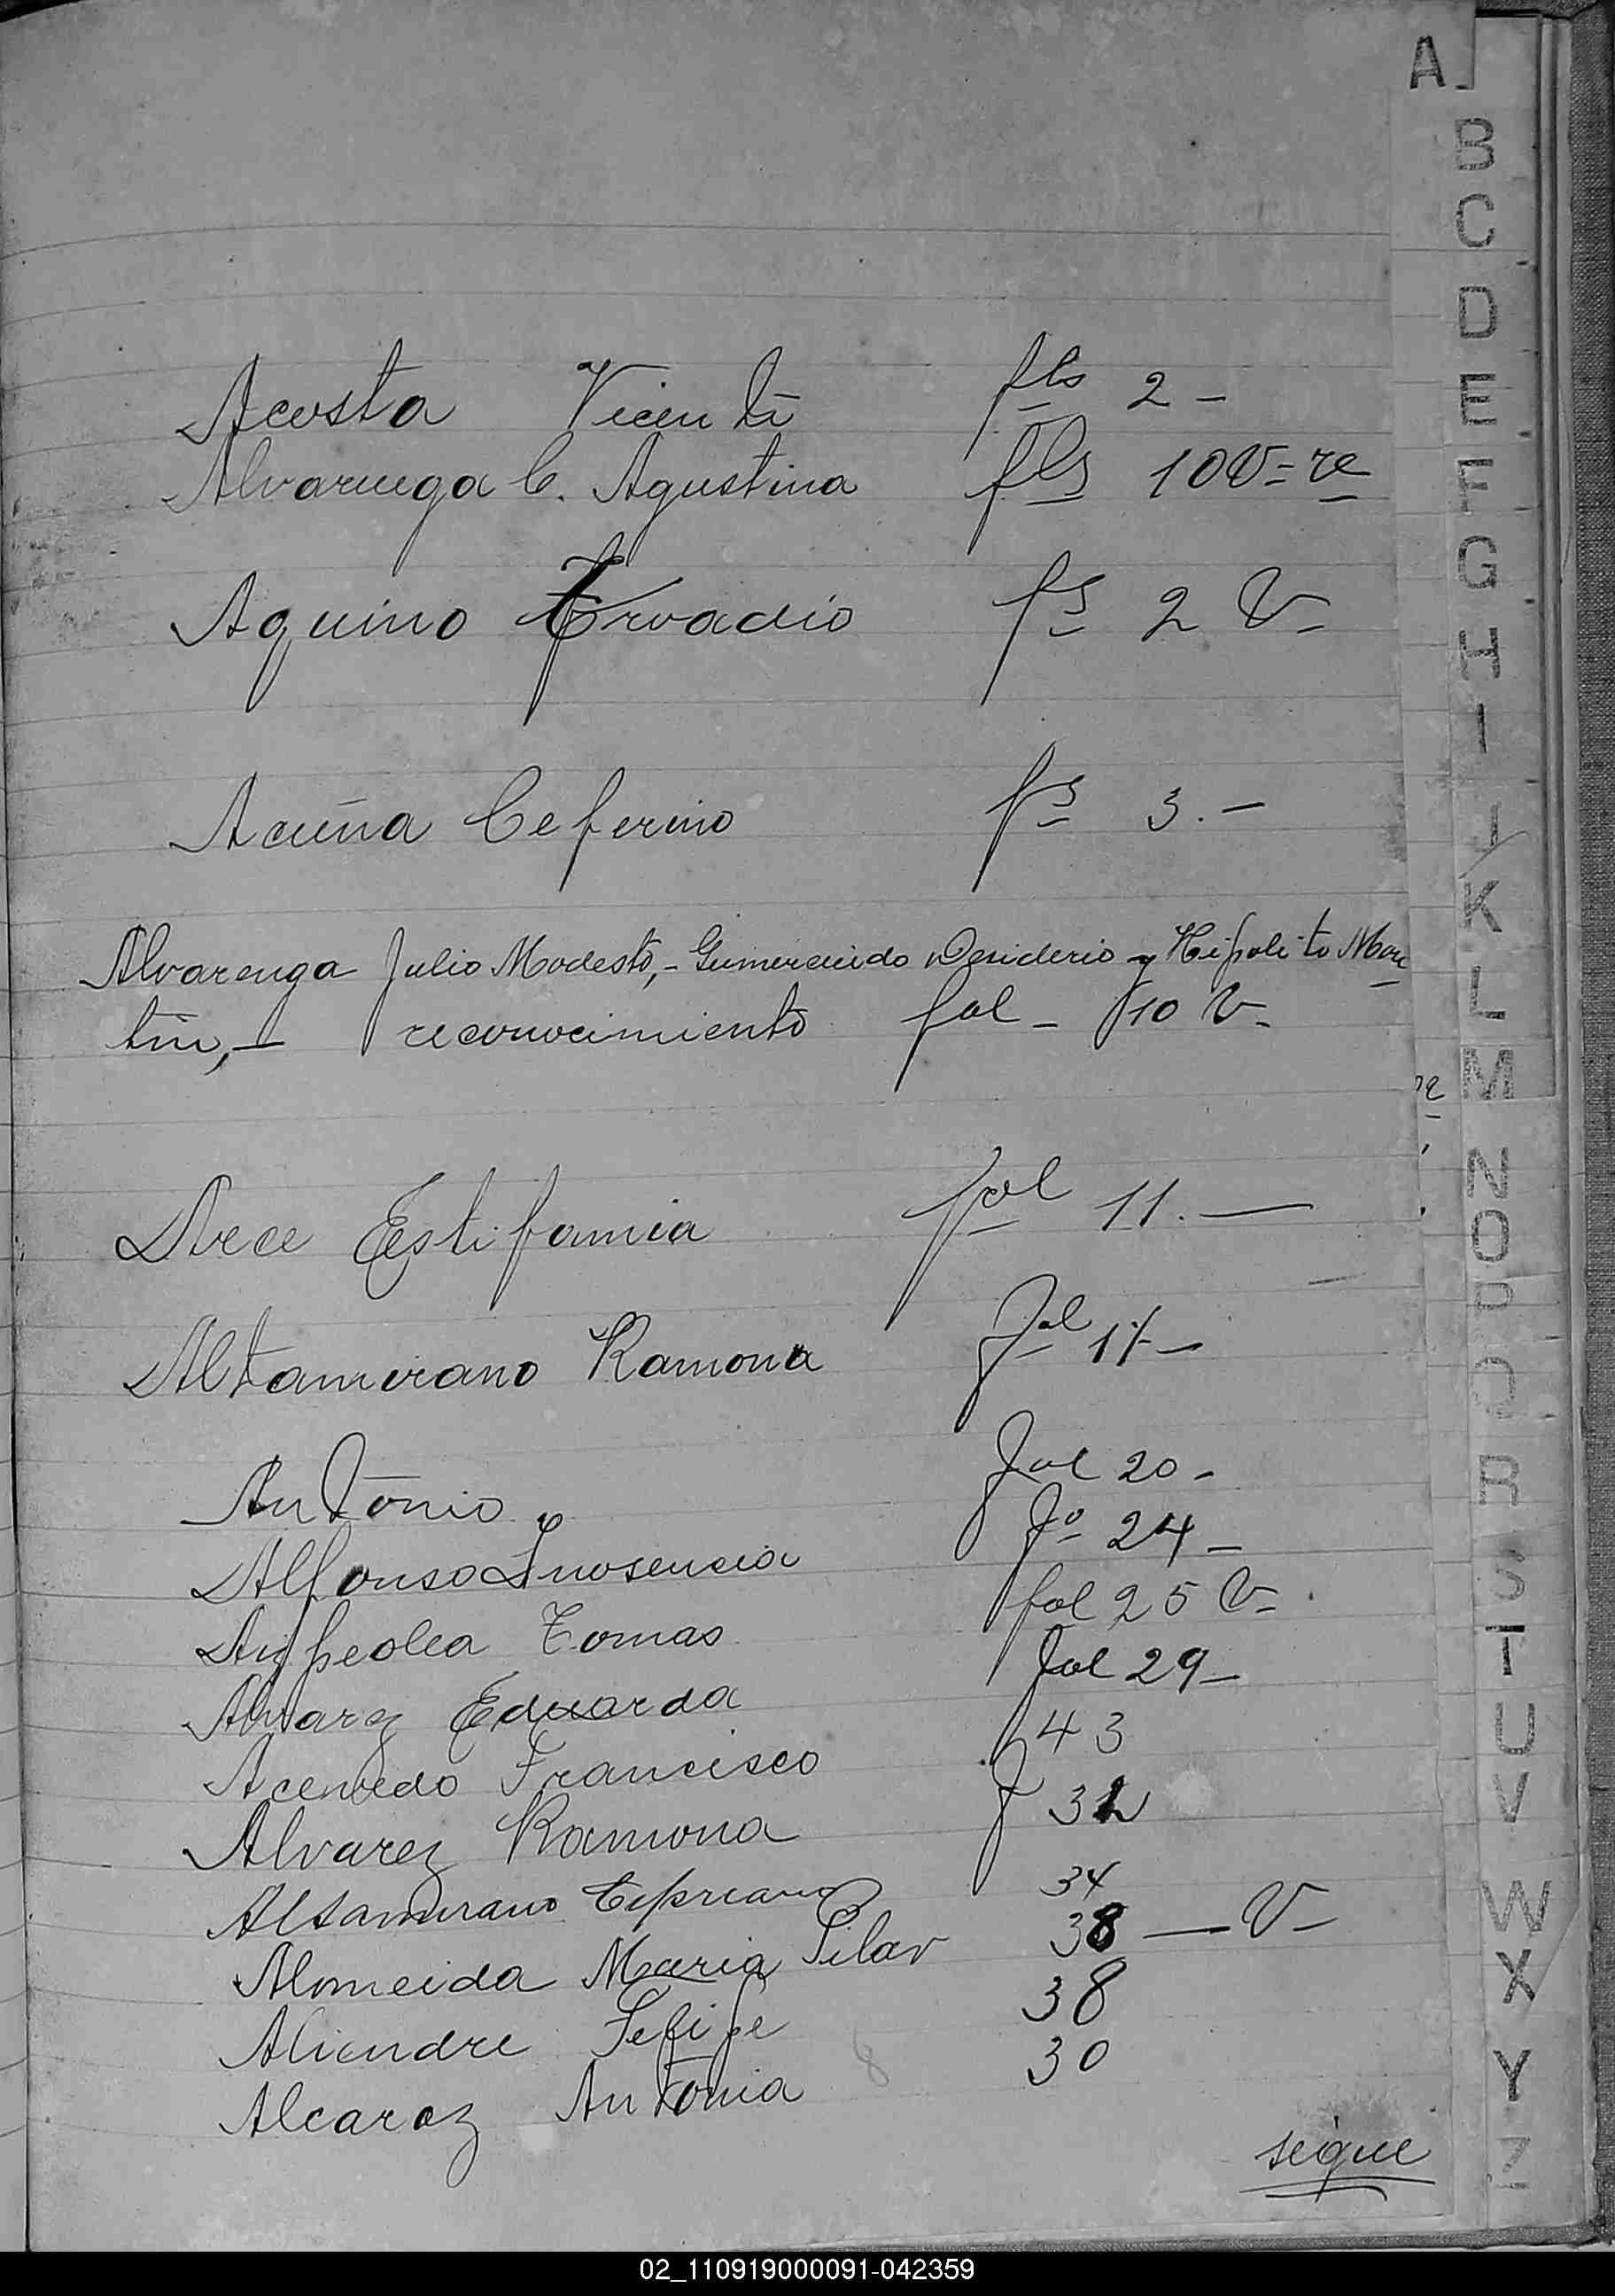 A
B
C
D
E
F
G
H
I
J
K
L
M
N
O
P
Q
R
S
T
U
V
W
X
Y
Z
Acosta Vicente fls 2 -
Alvarenga C. Agustina fls 10 V = re
Aquino fs 2 V-
Acuña Ceferino fs 3. -
Alvarenga Julio Modesto, - Gumercindo Desiderio y Hipolito Mar
tin, - reconocimiento fol - 10 V-
Arce Estifamia fol 11. -
Altamirano Ramona fol 17 -
Antonio fol 20 -
Alfonso Inosencia fo 24 -
Tomas fol 25 V-
Alvarez Eduarda fol 29 -
Acevedo Francisco f 43
Alvarez Ramona f
Altamirano Cipriano 34
Almeida Maria Pilar 38 - V-
Aliendre Felipe 38
Alcaraz Antonia 30
sigue
02_110919000091-042359